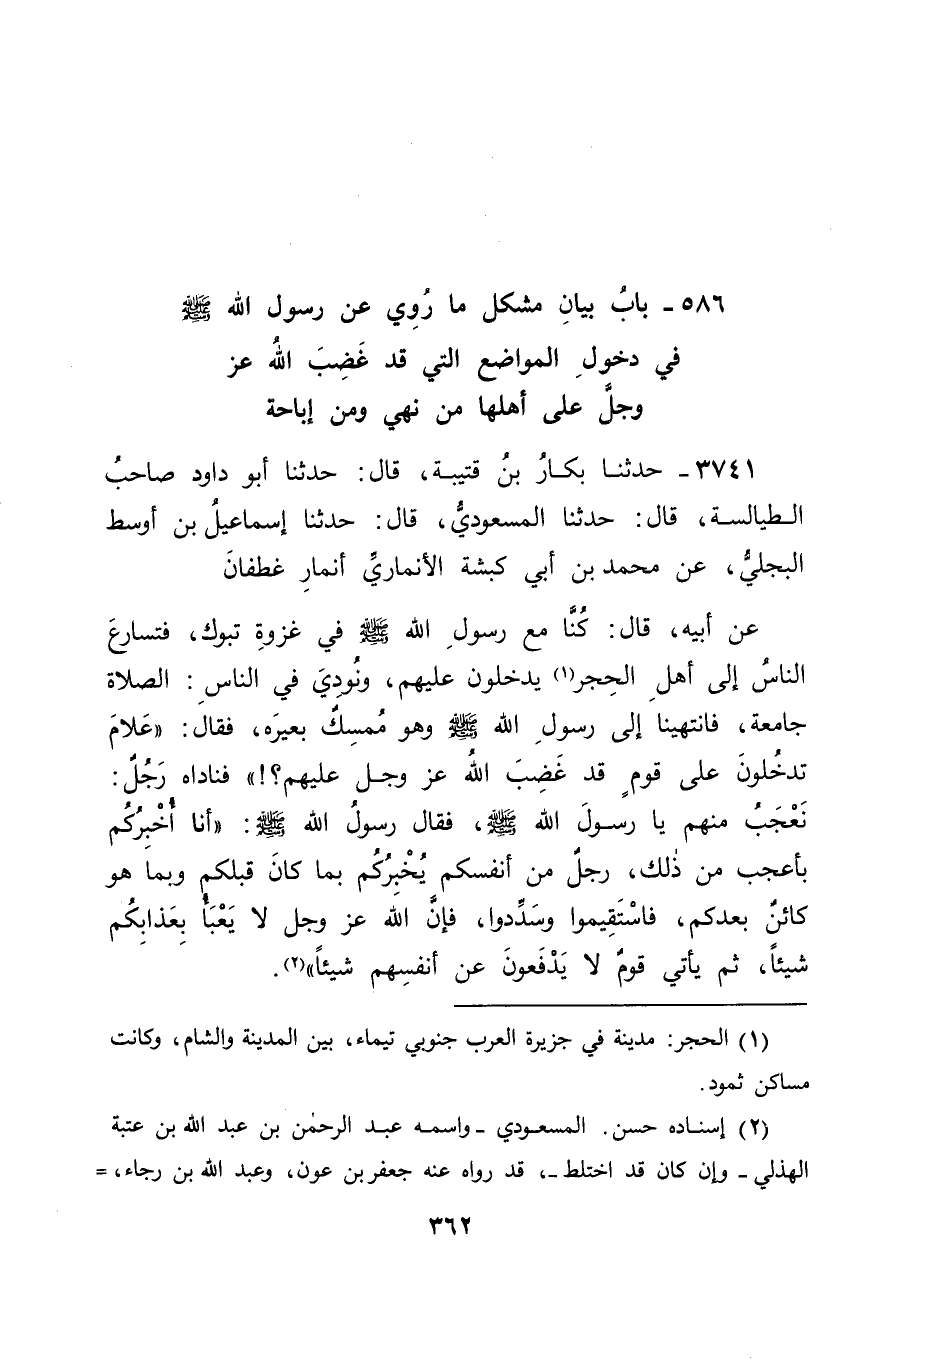 ٥٨٦ ـ بابُ بيانِ مشكل ما رُوِي عن رسول الله ﷺ
في دخولِ المواضع التي قد غَضِبَ اللهُ عز
وجلَّ على أهلها من نهي ومن إباحة
٣٧٤١ ـ حدثنا بكارُ بنُ قتيبة، قال: حدثنا أبو داود صاحبُ
الطيالسة، قال: حدثنا المسعوديُّ، قال: حدثنا إسماعيلُ بن أوسط
البجليُّ، عن محمد بن أبي كبشة الأنماريِّ أنمارِ غطفانَ
عن أبيه، قال: كُنَّا مع رسولِ الله ﷺ في غزوةِ تبوك، فتسارعَ
الناسُ إلى أهلِ الحِجر(١) يدخلون عليهم، ونُودِيَ في الناسِ: الصلاة
جامعة، فانتهينا إلى رسولِ الله ﷺ وهو مُمسِكٌ بعيرَه، فقال: «عَلامَ
تدخُلونَ على قومٍ قد غَضِبَ اللهُ عز وجل عليهم؟!» فناداه رَجُلٌ:
نَعْجَبُ منهم يا رسولَ الله ﷺ، فقال رسولُ الله ﷺ: «أنا أُخْبِرُكُم
بأعجب من ذٰلك، رجلٌ من أنفسكم يُخْبِرُكُم بما كانَ قبلكم وبما هو
كائنٌ بعدكم، فاسْتَقِيموا وسَدِّدوا، فإنَّ الله عز وجل لا يَعْبَأُ بِعَذابِكُم
شيئاً، ثم يأتي قومٌ لا يَدْفَعونَ عن أنفسِهم شيئاً»(٢).
(١) الحجر: مدينة في جزيرة العرب جنوبي تيماء، بين المدينة والشام، وكانت
مساكن ثمود.
(٢) إسناده حسن. المسعودي ـ واسمه عبد الرحمٰن بن عبد الله بن عتبة
الهذلي ـ وإن كان قد اختلط ـ، قد رواه عنه جعفر بن عون، وعبد الله بن رجاء، =
٣٦٢